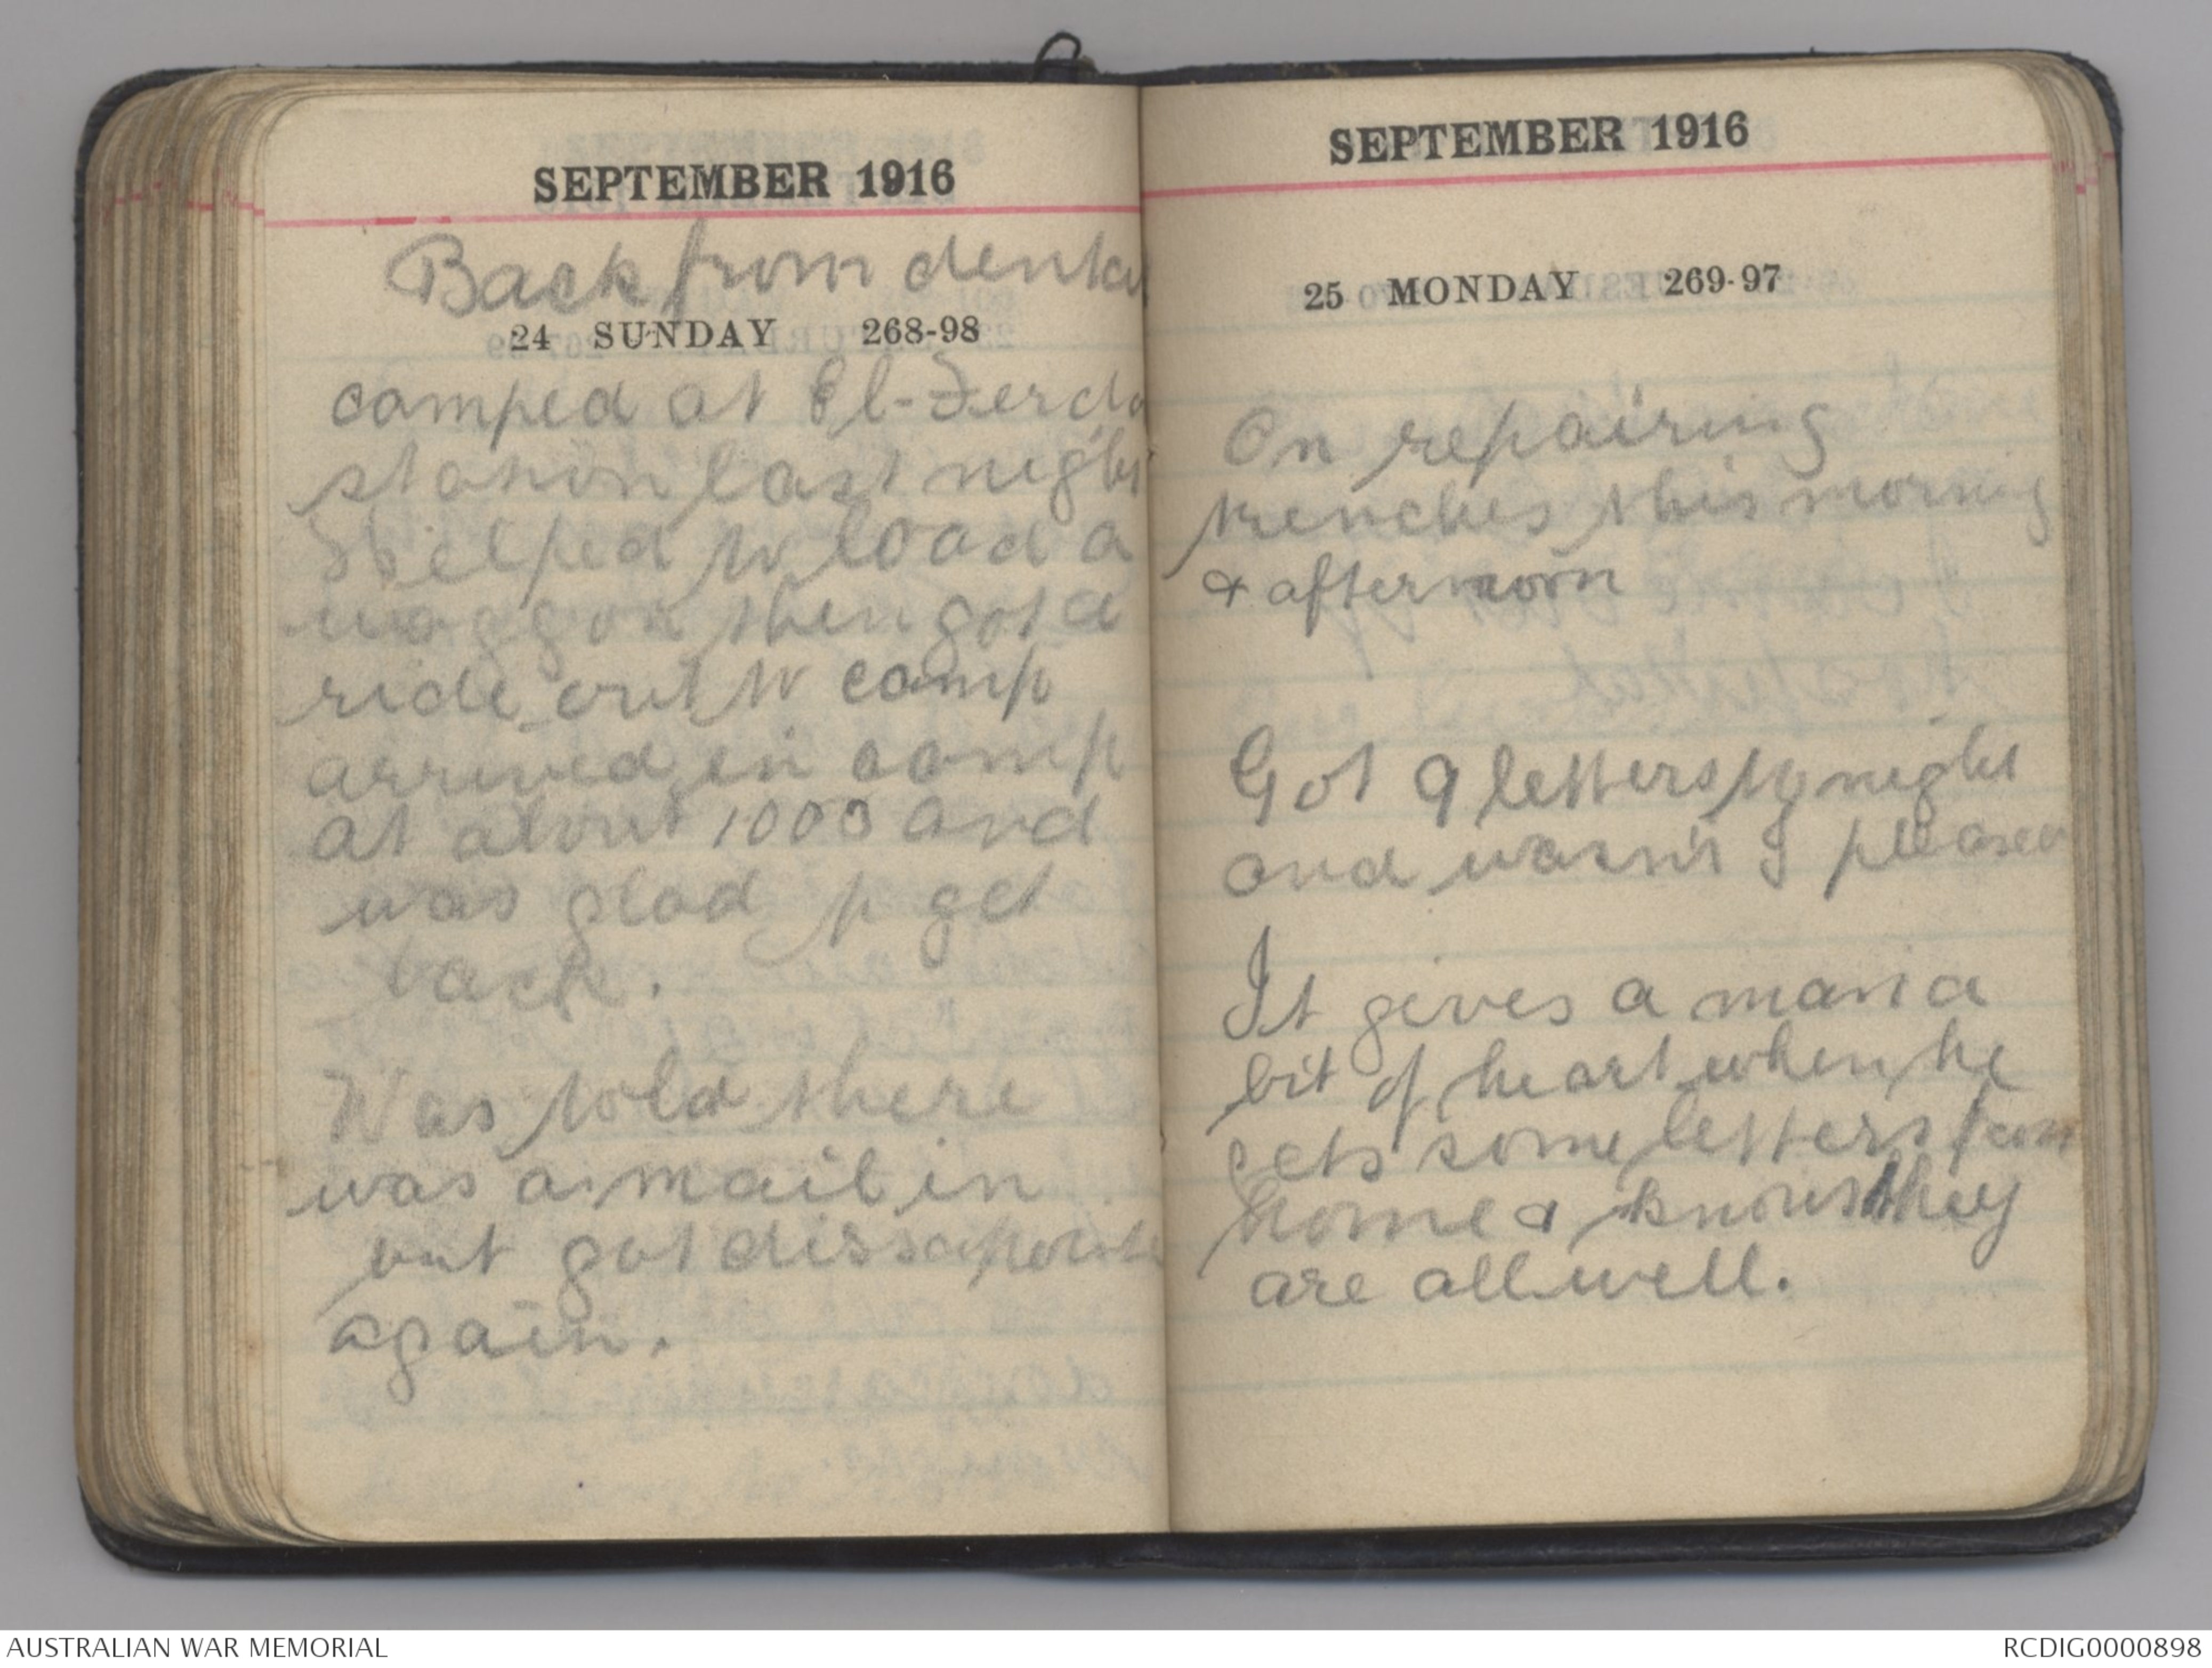 SEPTEMBER 1916
Back from dental
24 SUNDAY 268-98
camped at El-Ferda
station last night
Helped to load a
waggon then got a
ride out to camp
arrived in camp
at about 1000 and
was glad to get
back.
Was told there
was a mail in
but got dissapointe
again.
SEPTEMBER 1916
25 MONDAY 269-97
On repairing
trenches this morning
& afternoon
Got 9 letters to night
and wasn't I pleased
It gives a man a
bit of heart when he
gets some letters from
home & knows they
are all well.
AUSTRALIAN WAR MEMORIAL
RCDIG0000898